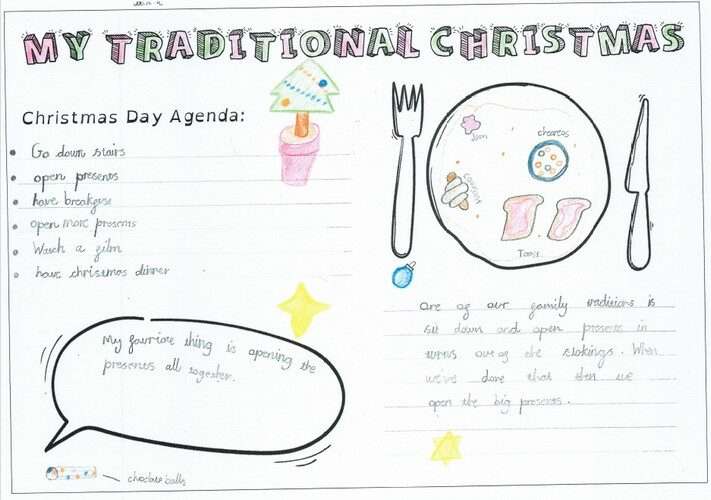 MY TRADITIONAL CHRISTMAS
Christmas Day Agenda:
Go down stairs
open presents
have breakgest
open more presents
Watch a film
have christmas dinner
Jam
cheerios
Toast
One of our family traditions is
sit down and open presents in
turns out of the stokings. When
we've done that then we
open the big presents.
My favriote thing is opening the
presents all together.
choclate balls